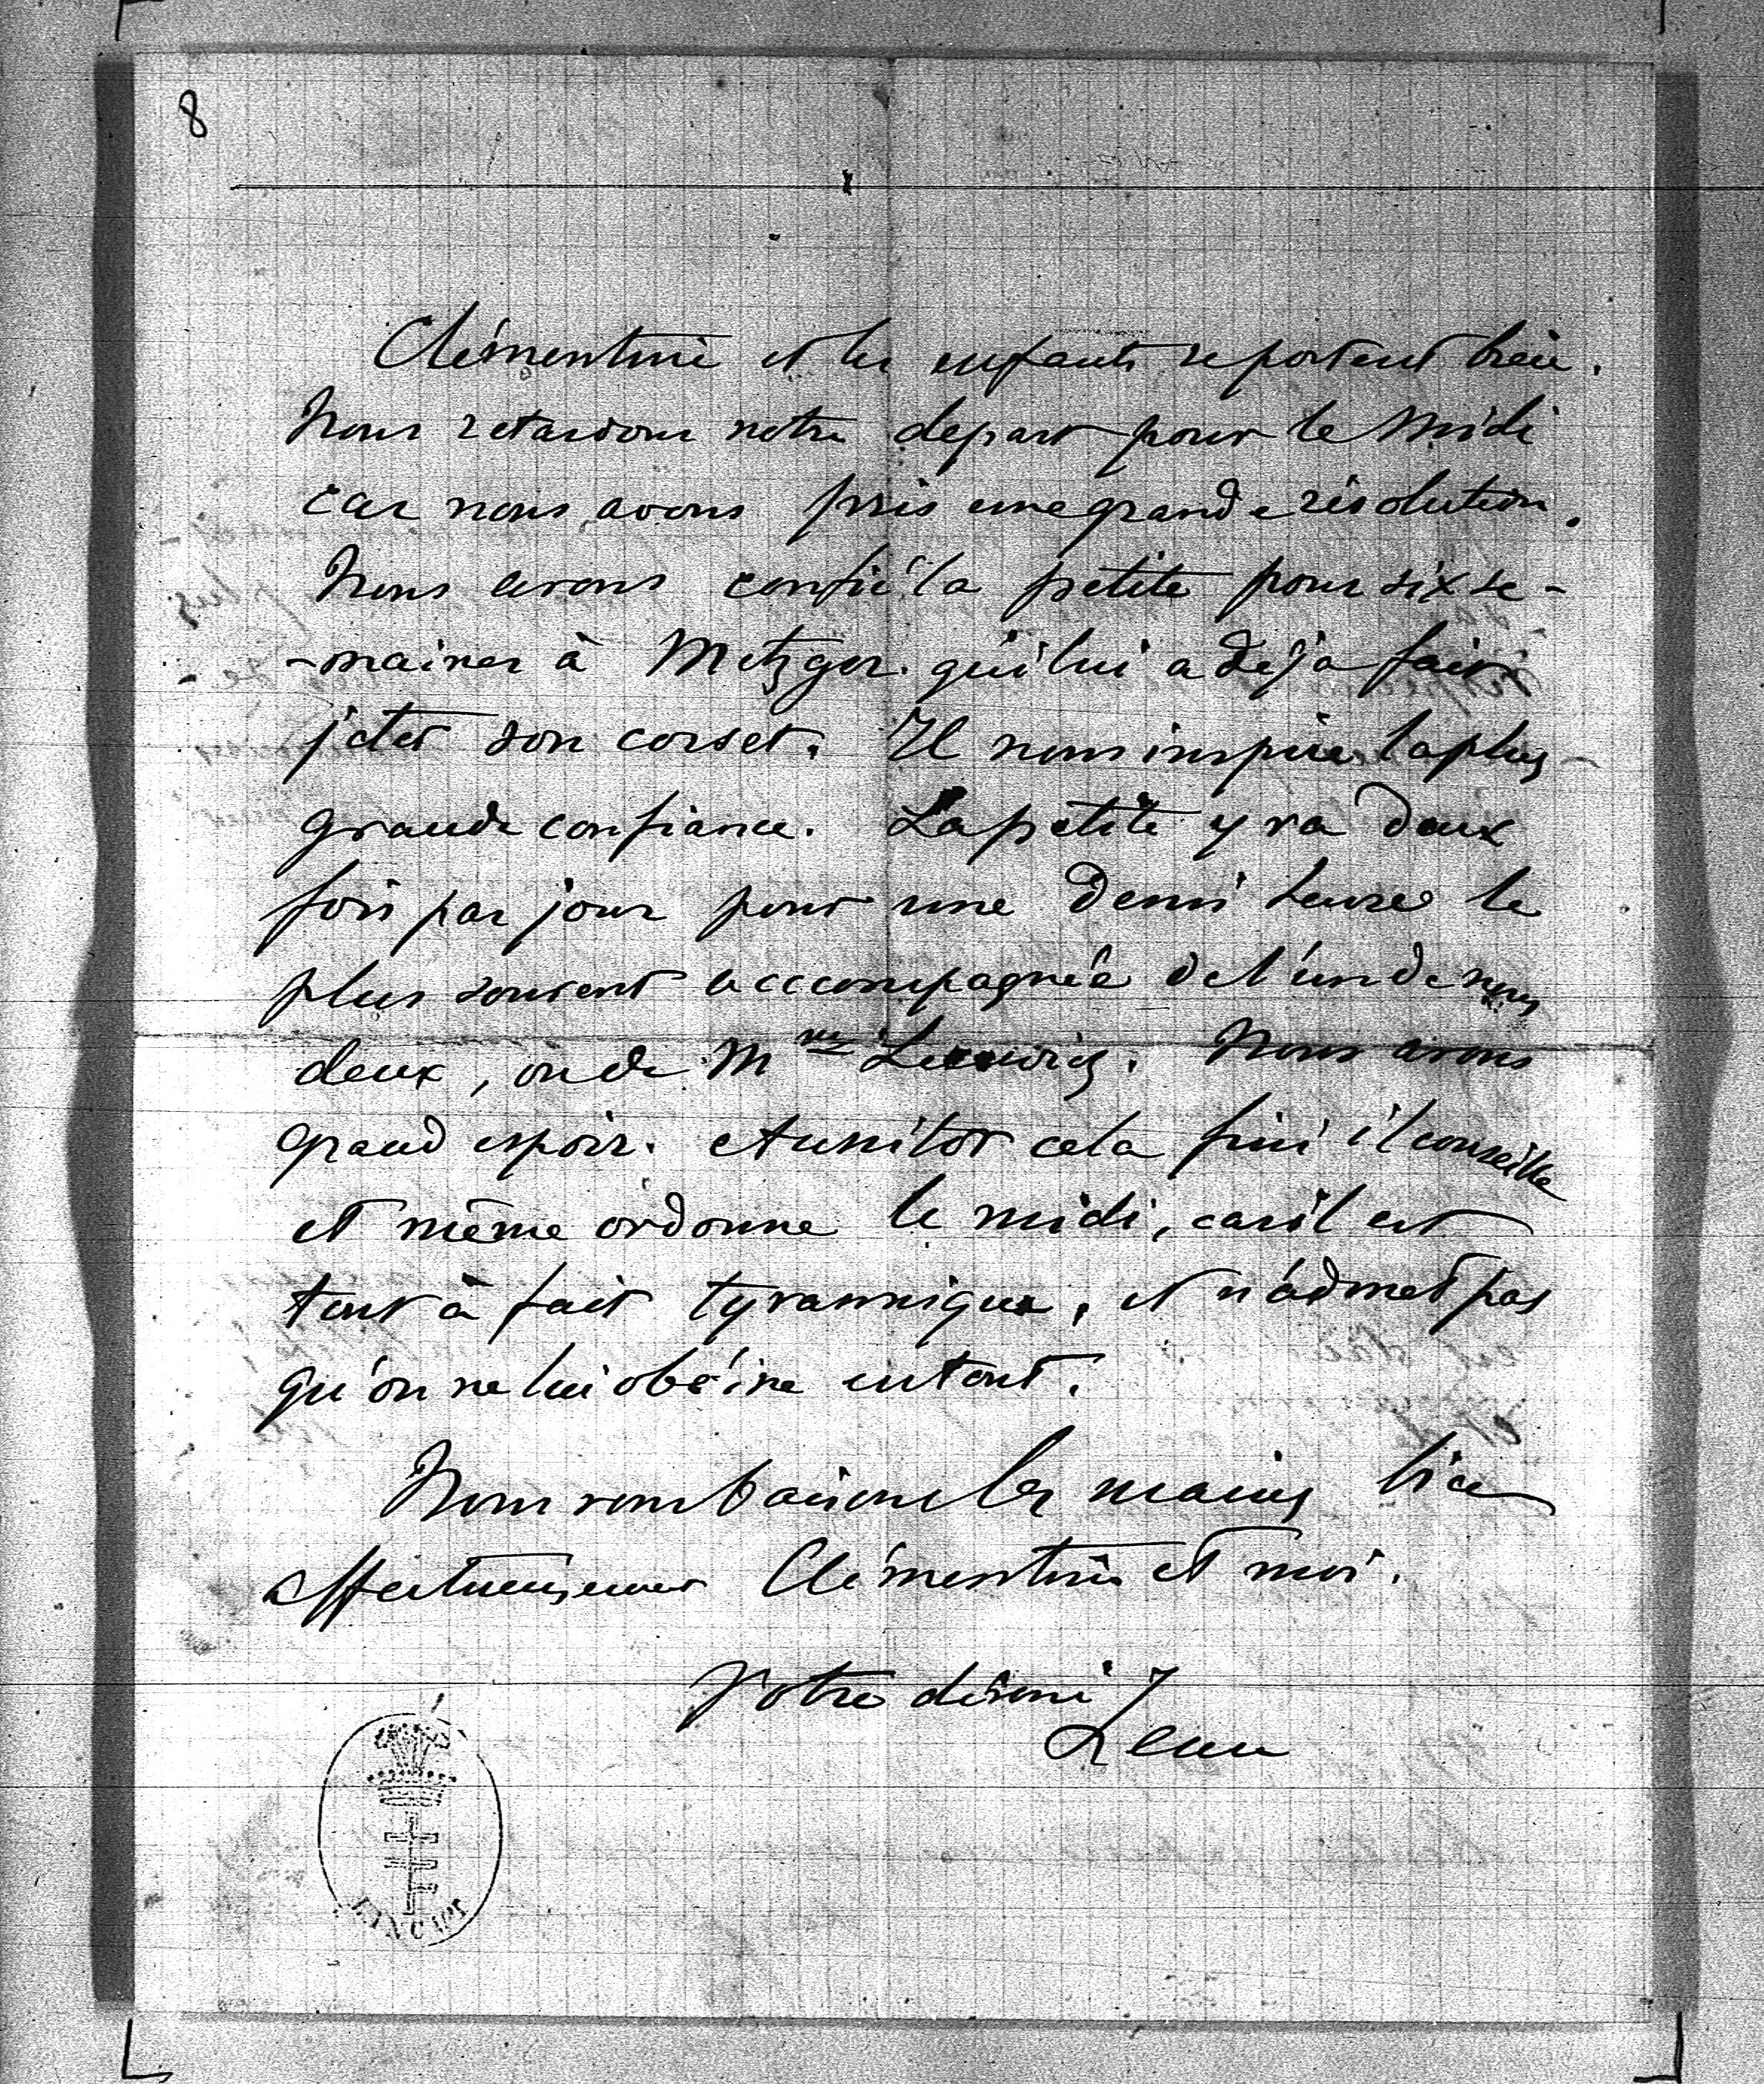 8
Clémentine et les enfants se portent bien.
Nous retardons notre départ pour le Midi
car nous avons pris une grande résolution.
Nous avons confié la petite pour six se-
-maines à Metzger qui lui a déjà fait
jeter son corset. Il nous inspire la plus
grande confiance. La petite y va deux
fois par jour pour une demi heure le
plus souvent accompagnée de l'un de nous
deux, ou de Mme. Nous avons
grand espoir. Aussitôt cela fini il conseille
et même ordonne le midi, car il est
tout à fait tyrannique, et n'admet pas
qu'on ne lui obéisse en tout.
Nous vous baisons les mains bien
affectueusement Clémentine et moi.
Votre dévoué
Jean